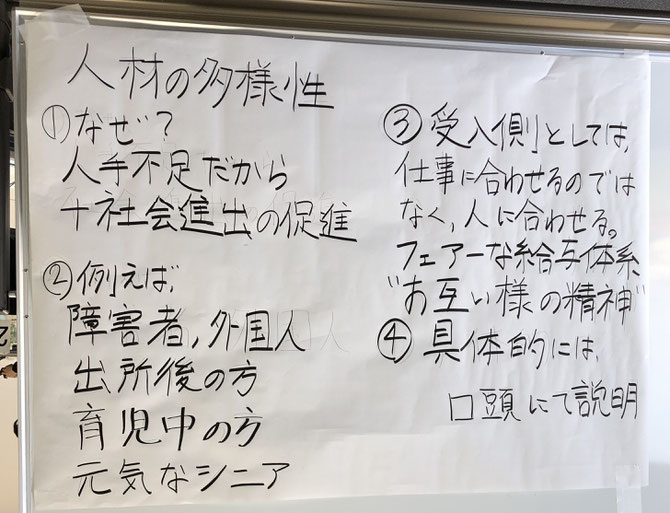 人材の多様性
①なぜ?
人手不足だから
+社会進出の促進
②例えば、
障害者,外国人
出所後の方
育児中の方
元気なシニア
③受入側としては、
仕事に合わせるのでは
なく,人に合わせる。
フェアーな給与体系、
"お互い様の精神"
④具体的には、
口頭にて説明